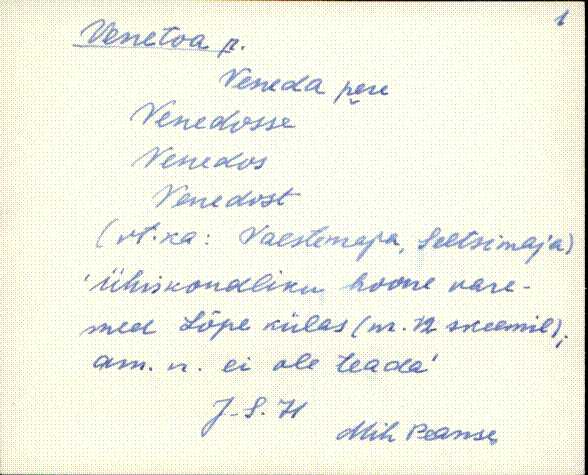 1
Venetoa p.
Veneda pere
Venedosse
Venedos
Venedost
(vt. ka: Vaestemaja, Seltsimaja)
'Ühiskondliku hoone vare-
med Lõpe külas (nr. 12 skeemil),
am. n. ei ole teada'
J-S. H
Mih